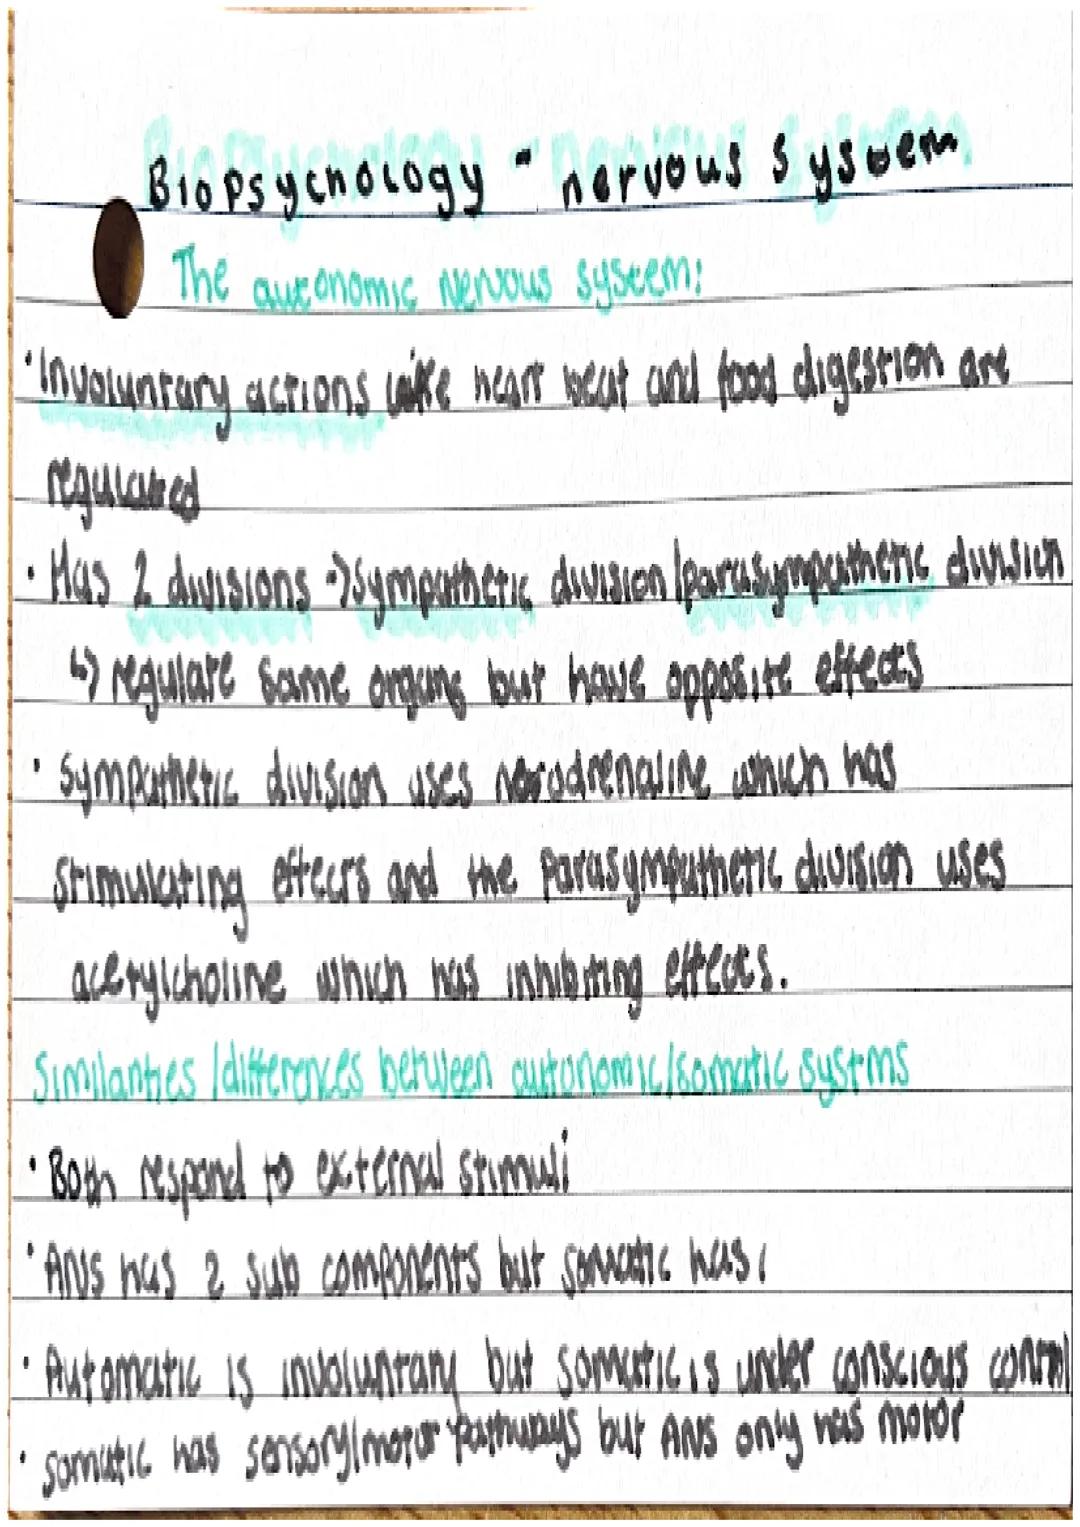 Biopsychology - nervous system
The autonomic nervous system:
• Involuntary actions like heart beat and food digestion are
regulated
• Has 2 divisions → Sympathetic division / parasympathetic division
↳ regulate same organs but have opposite effects
• Sympathetic division uses noradrenaline which has
stimulating effects and the parasympathetic division uses
acetylcholine which has inhibiting effects.
Similarities / differences between autonomic / somatic systms
• Both respond to external stimuli
• ANS has 2 sub components but somatic has 1
• Automatic is involuntary but somatic is under conscious control
• somatic has sensory/motor pathways but ANS only has motor